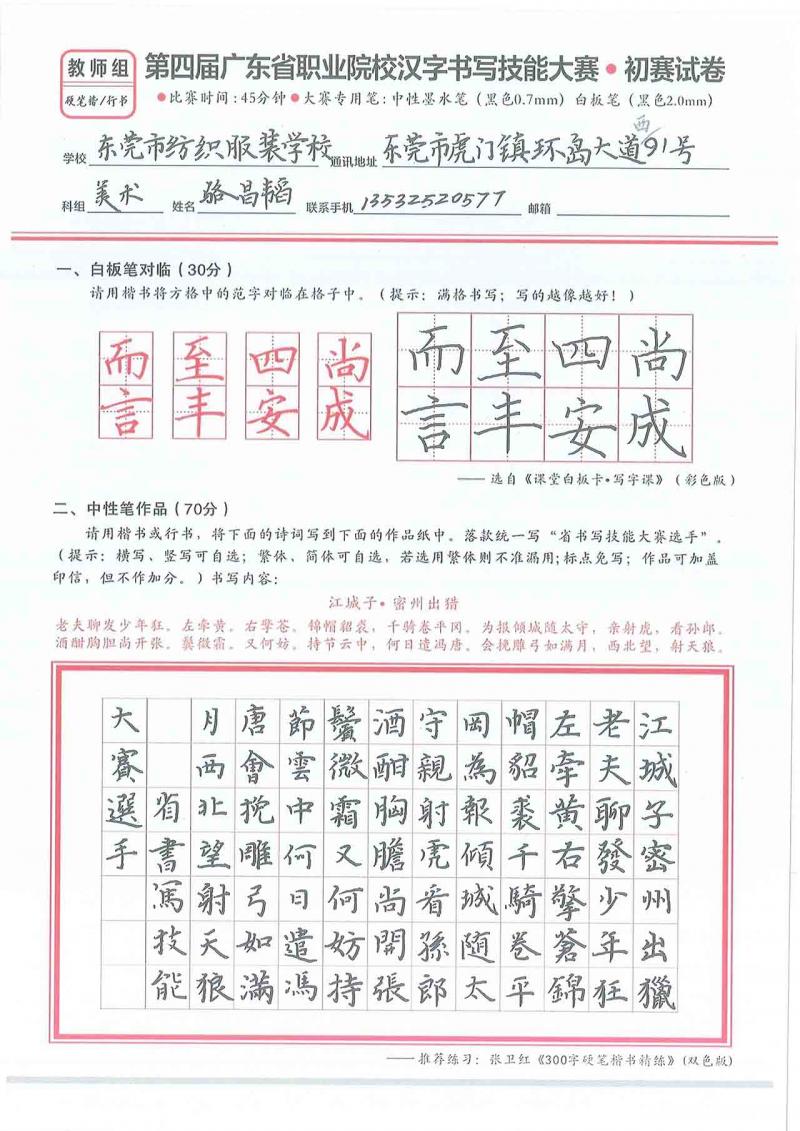 教师组
硬笔楷/行书
第四届广东省职业院校汉字书写技能大赛•初赛试卷
●比赛时间:45分钟●大赛专用笔:中性墨水笔(黑色0.7mm)白板笔(黑色2.0mm)
学校 东莞市纺织服装学校 通讯地址 东莞市虎门镇环岛大道西91号
科组 美术 姓名 骆昌韬 联系手机 13532520577 邮箱
一、白板笔对临(30分)
请用楷书将方格中的范字对临在格子中。(提示:满格书写;写的越像越好!)
而 至 四 尚 而至四尚
言 丰 安 成 言丰安成
——选自《课堂白板卡•写字课》(彩色版)
二、中性笔作品(70分)
请用楷书或行书,将下面的诗词写到下面的作品纸中。落款统一写“省书写技能大赛选手”。
(提示:横写、竖写可自选;繁体、简体可自选,若选用繁体则不准漏用;标点免写;作品可加盖
印信,但不作加分。)书写内容:
江城子•密州出猎
老夫聊发少年狂。左牵黄。右擎苍。锦帽貂裘,千骑卷平冈。为报倾城随太守,亲射虎,看孙郎。
酒酣胸胆尚开张。鬓微霜。又何妨。持节云中,何日遣冯唐。会挽雕弓如满月,西北望,射天狼。
江城子密州出獵
老夫聊發少年狂
左牽黄右擎蒼錦
帽貂裘千騎卷平
岡為報傾城随太
守親射虎看孫郎
酒酣胸膽尚開張
鬢微霜又何妨持
節雲中何日遣馮
唐會挽雕弓如滿
月西北望射天狼
省書寫技能
大賽選手
——推荐练习:张卫红《300字硬笔楷书精练》(双色版)